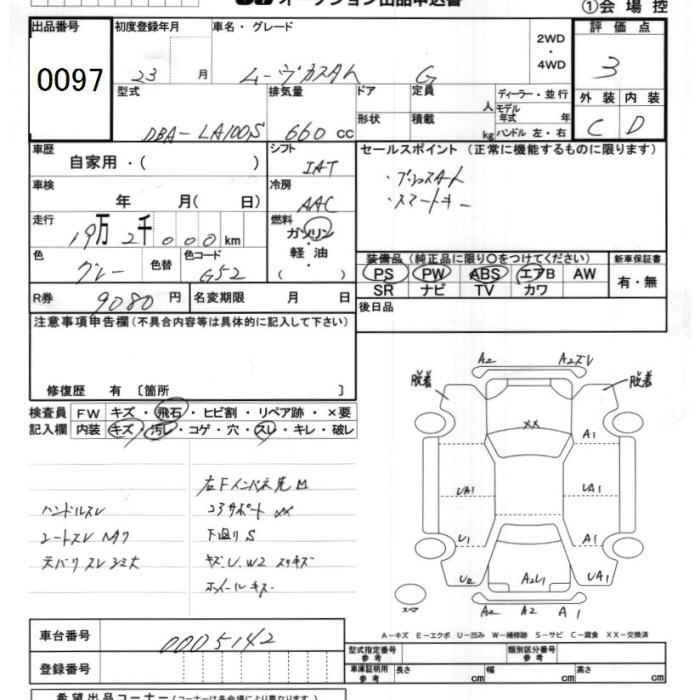 オークション出品申込書
①会場控
出品番号 0097
初度登録年月 23 月
車名・グレード ムーヴカスタム G
2WD・4WD
評価点 3
型式 DBA-LA100S
排気量 660 cc
ドア形状
定員 人
積載 kg
ディーラー・並行
モデル年式 年
ハンドル 左・右
外装 C
内装 D
車歴 自家用・( )
シフト IAT
セールスポイント (正常に機能するものに限ります)
・プッシュスタート
・スマートキー
車検 年 月( 日)
冷房 AAC
走行 19万2千000km
燃料 ガソリン・軽油・( )
色 グレー
色替
色コード G52
装備品(純正品に限り○をつけてください)
新車保証書
PS PW ABS エアB AW
有・無
SR ナビ TV カワ
R券 9080円
名変期限 月 日
後日品
注意事項申告欄(不具合内容等は具体的に記入して下さい)
修復歴 有〔箇所 〕
検査員記入欄
FW キズ・飛石・ヒビ割・リペア跡・×要
内装 キズ・汚レ・コゲ・穴・スレ・キレ・破レ
ハンドルスレ
コアサポート XX
下廻りS
キズ、U、W2 スリキズ
ホイールキズ
A2 A2スレ
脱着 脱着
XX
A1
UA1 UA1
U1 A1
U2 A2U1 UA1
スペア
A2 A2 A1
A-キズ E-エクボ U-凹み W-補修跡 S-サビ C-腐食 XX-交換済
車台番号 0005142
型式指定番号 参考
類別区分番号 参考
登録番号
車庫証明用 参考
長さ cm
幅 cm
高さ cm
希望出品コーナー(コーナーは各会場により異なります)